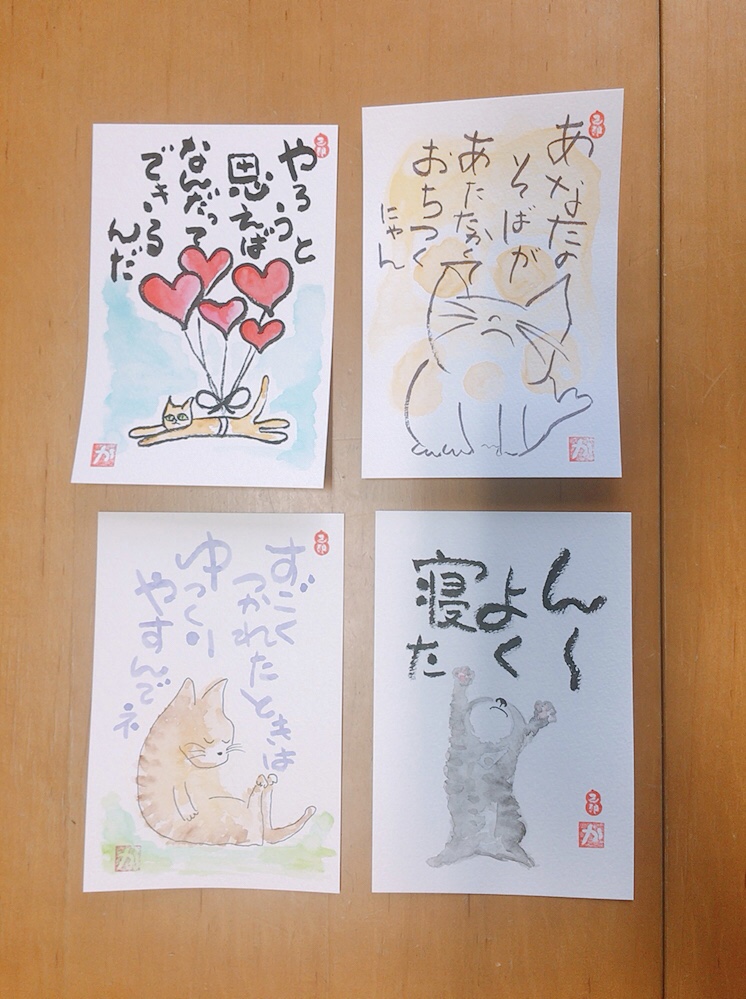 やろうと
思えば
なんだって
できる
んだ
か
あなたの
そばが
あたたかく
おちつく
にゃん
か
すごく
つかれたときは
ゆっくり
やすんで
ネ
か
ん～
よく
寝た
か